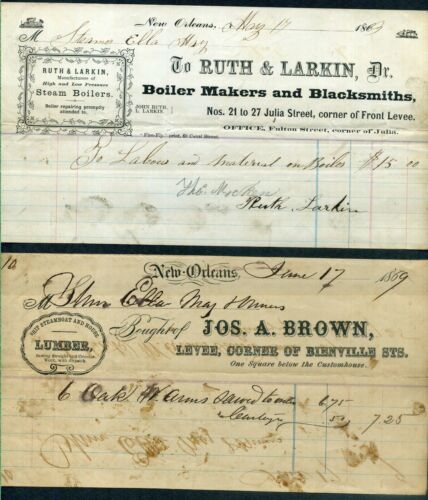 New Orleans, May 17 1869
M Steamer Ella May
To RUTH & LARKIN, Dr.
Boiler Makers and Blacksmiths,
Nos. 21 to 27 Julia Street, corner of Front Levee.
OFFICE, Fulton Street, corner of Julia.
RUTH & LARKIN,
Manufacturers of
High and Low Pressure
Steam Boilers.
Boiler repairing promptly
attended to.
JOHN RUTH,
L. LARKIN.
To Labour and material on Boiler $15 00
Ruth Larkin
New Orleans, June 17 1869
M Stmr Ella May & Owners
Bought of JOS. A. BROWN,
LEVEE, CORNER OF BIENVILLE STS.
One Square below the Customhouse.
SHIP STEAMBOAT AND HOUSE
LUMBER,
Sawing Straight and Circular
Work, with dispatch.
6 Oak W Arms Sawed to order 6.75
50 7.25